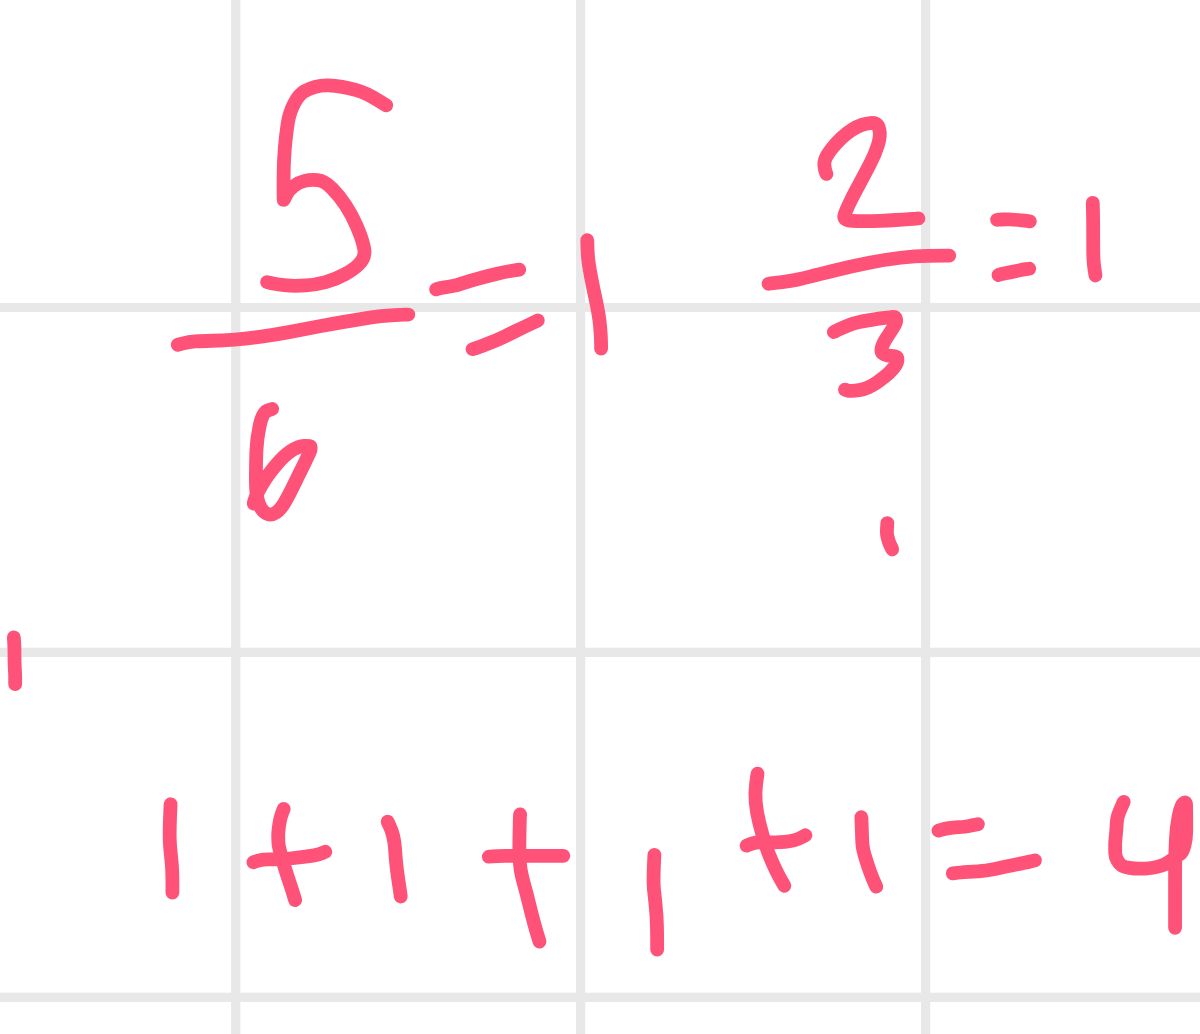 5/6 = 1 2/3 = 1
1 + 1 + 1 + 1 = 4